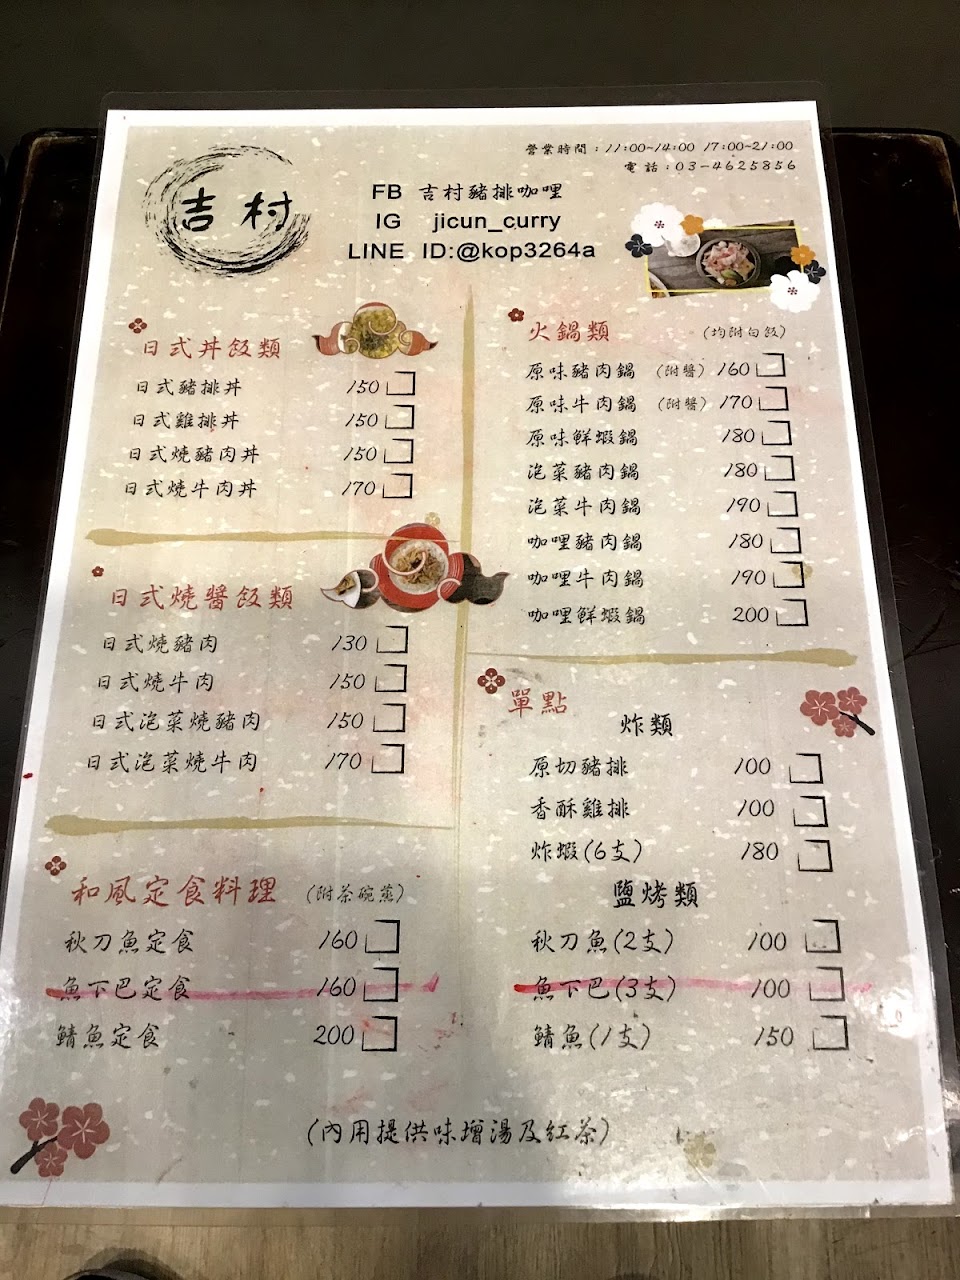 吉村
營業時間：11:00~14:00 17:00~21:00
電話：03-4625856
FB 吉村豬排咖哩
IG jicun_curry
LINE ID:@kop3264a
日式丼飯類
日式豬排丼 150
日式雞排丼 150
日式燒豬肉丼 150
日式燒牛肉丼 170
日式燒醬飯類
日式燒豬肉 130
日式燒牛肉 150
日式泡菜燒豬肉 150
日式泡菜燒牛肉 170
和風定食料理 (附茶碗蒸)
秋刀魚定食 160
魚下巴定食 160
鯖魚定食 200
火鍋類 (均附白飯)
原味豬肉鍋 (附醬) 160
原味牛肉鍋 (附醬) 170
原味鮮蝦鍋 180
泡菜豬肉鍋 180
泡菜牛肉鍋 190
咖哩豬肉鍋 180
咖哩牛肉鍋 190
咖哩鮮蝦鍋 200
單點
炸類
原切豬排 100
香酥雞排 100
炸蝦(6支) 180
鹽烤類
秋刀魚(2支) 100
魚下巴(3支) 100
鯖魚(1支) 150
(內用提供味增湯及紅茶)